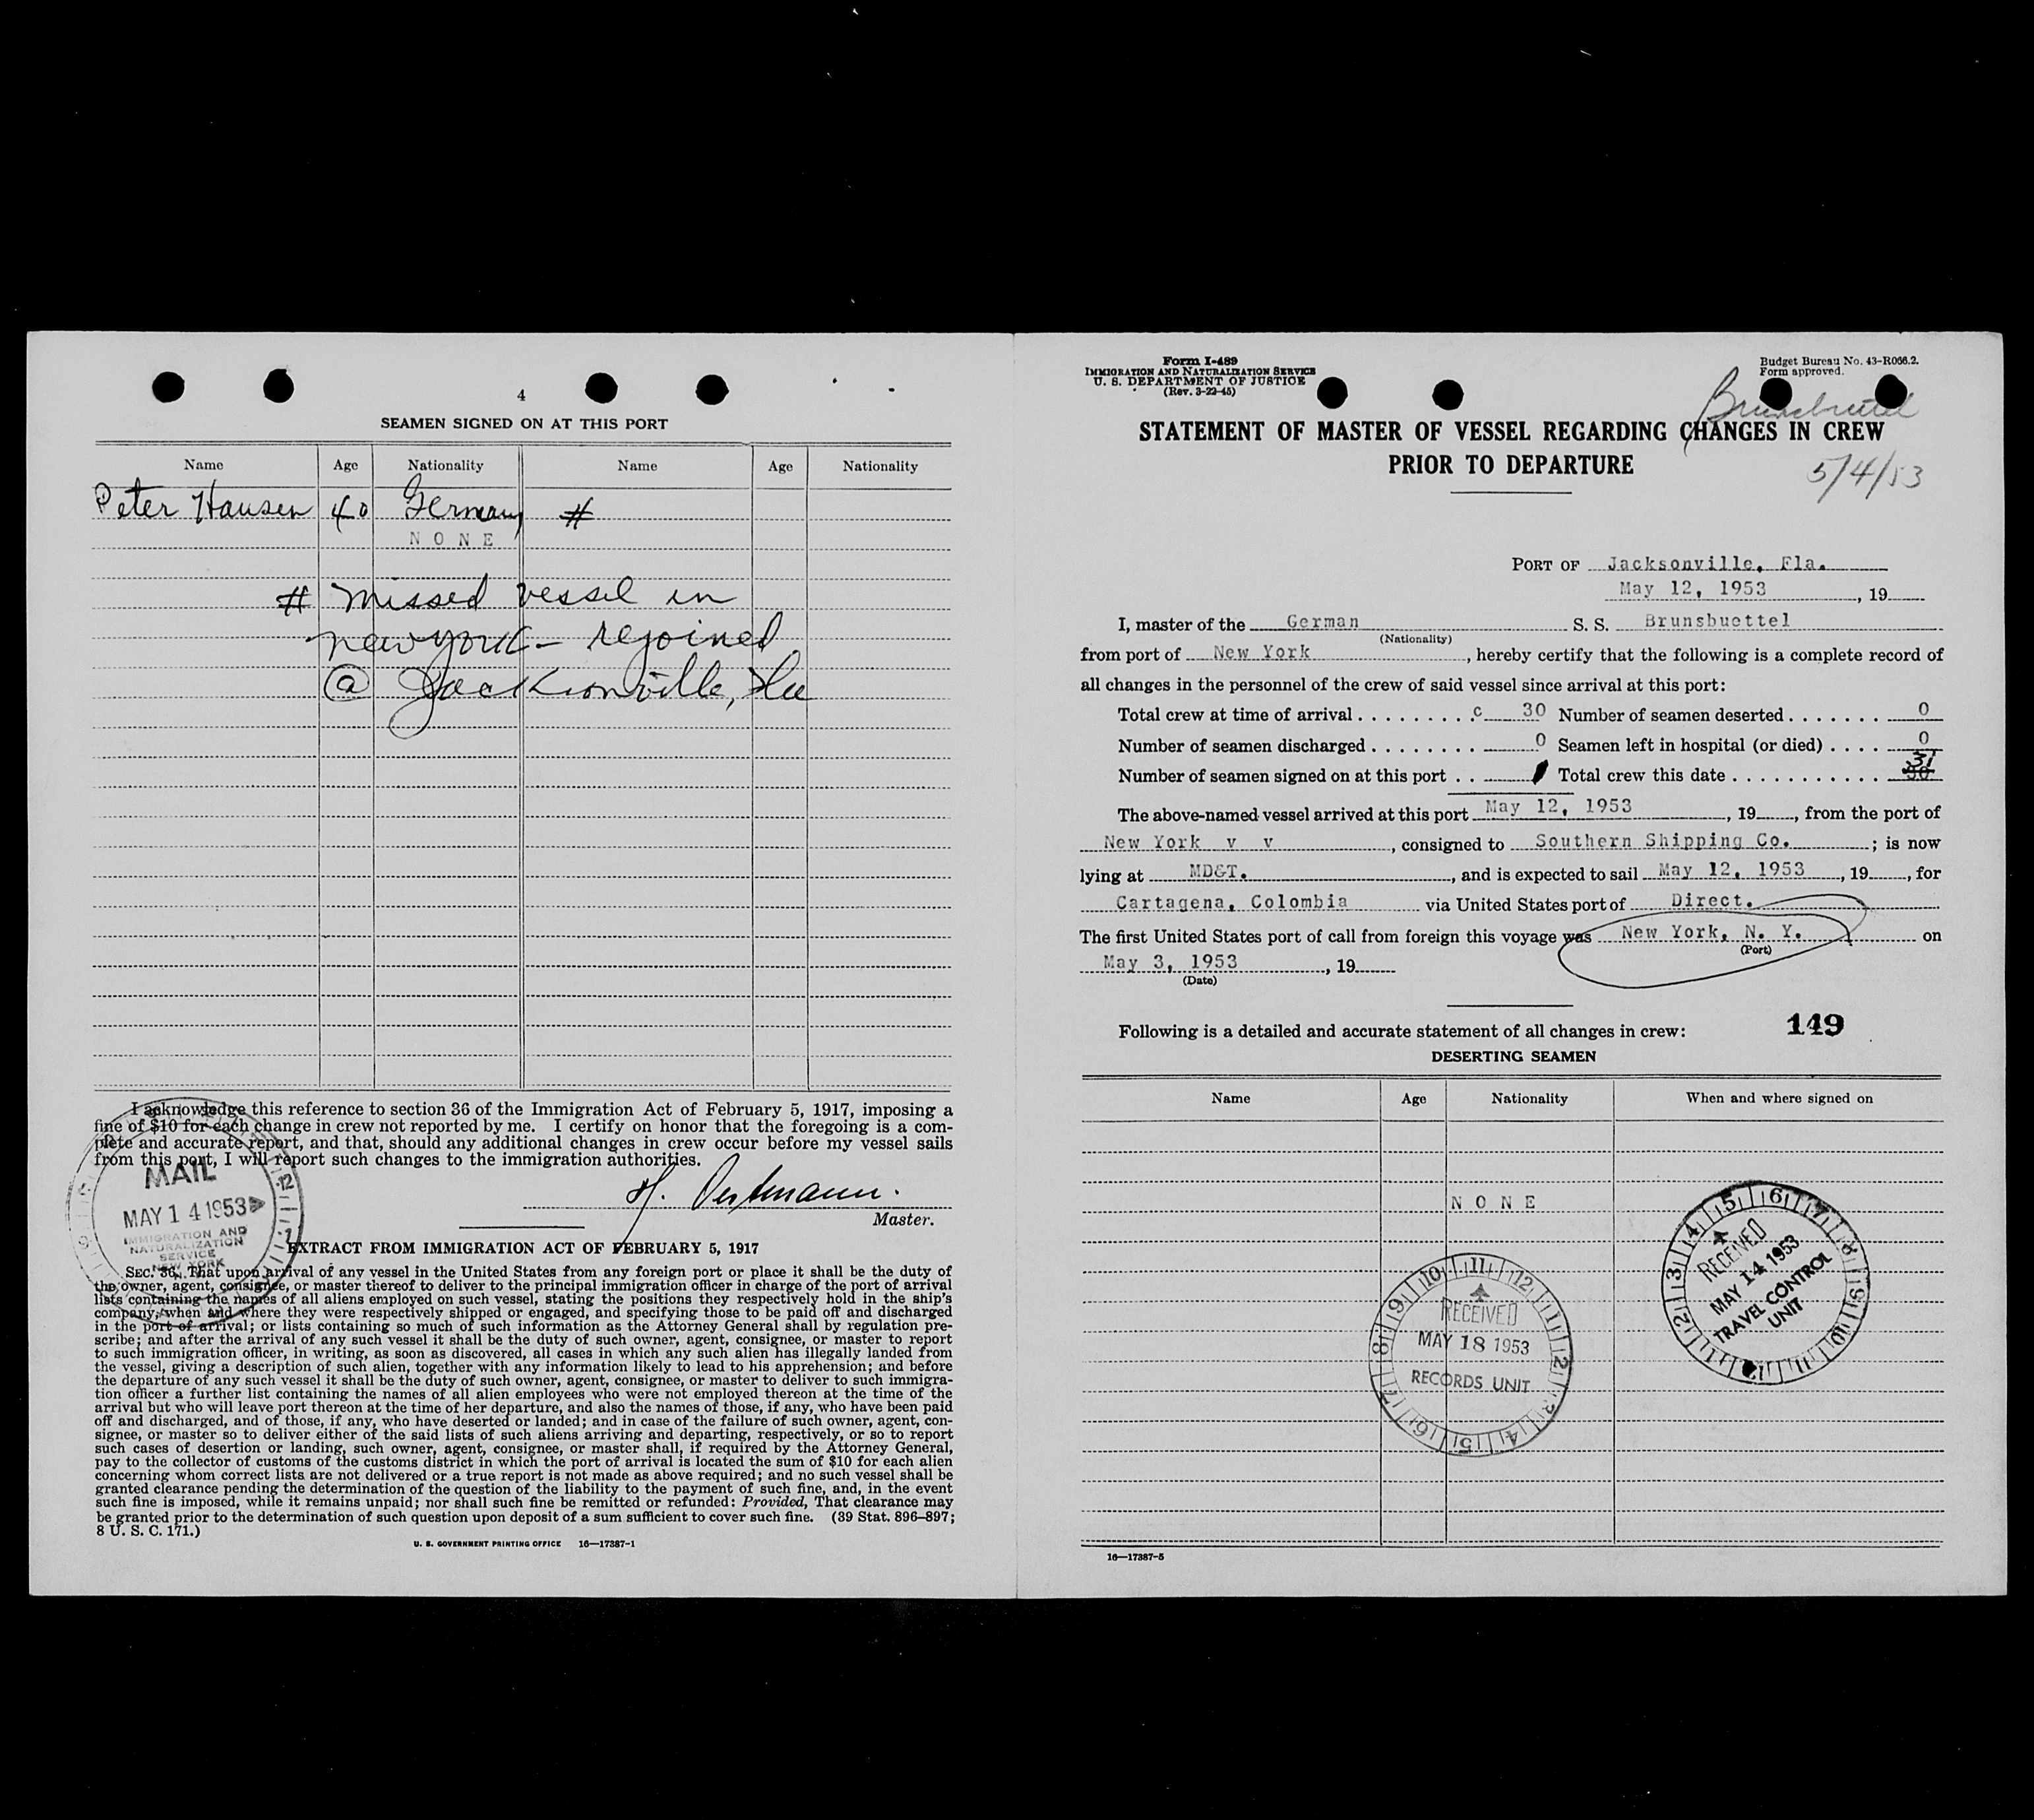 4
SEAMEN SIGNED ON AT THIS PORT
Name Age Nationality Name Age Nationality
Peter Hansen 40 Germany #
NONE
# missed vessel in
new york - rejoined
@ Jacksonville, Fla
I acknowledge this reference to section 36 of the Immigration Act of February 5, 1917, imposing a
fine of $10 for each change in crew not reported by me. I certify on honor that the foregoing is a com-
plete and accurate report, and that, should any additional changes in crew occur before my vessel sails
from this port, I will report such changes to the immigration authorities.
MAIL
MAY 14 1953
IMMIGRATION AND
NATURALIZATION
SERVICE
NEW YORK
H.
Master.
EXTRACT FROM IMMIGRATION ACT OF FEBRUARY 5, 1917
SEC. 36. That upon arrival of any vessel in the United States from any foreign port or place it shall be the duty of
the owner, agent, consignee, or master thereof to deliver to the principal immigration officer in charge of the port of arrival
lists containing the names of all aliens employed on such vessel, stating the positions they respectively hold in the ship's
company, when and where they were respectively shipped or engaged, and specifying those to be paid off and discharged
in the port of arrival; or lists containing so much of such information as the Attorney General shall by regulation pre-
scribe; and after the arrival of any such vessel it shall be the duty of such owner, agent, consignee, or master to report
to such immigration officer, in writing, as soon as discovered, all cases in which any such alien has illegally landed from
the vessel, giving a description of such alien, together with any information likely to lead to his apprehension; and before
the departure of any such vessel it shall be the duty of such owner, agent, consignee, or master to deliver to such immigra-
tion officer a further list containing the names of all alien employees who were not employed thereon at the time of the
arrival but who will leave port thereon at the time of her departure, and also the names of those, if any, who have been paid
off and discharged, and of those, if any, who have deserted or landed; and in case of the failure of such owner, agent, con-
signee, or master so to deliver either of the said lists of such aliens arriving and departing, respectively, or so to report
such cases of desertion or landing, such owner, agent, consignee, or master shall, if required by the Attorney General,
pay to the collector of customs of the customs district in which the port of arrival is located the sum of $10 for each alien
concerning whom correct lists are not delivered or a true report is not made as above required; and no such vessel shall be
granted clearance pending the determination of the question of the liability to the payment of such fine, and, in the event
such fine is imposed, while it remains unpaid; nor shall such fine be remitted or refunded: Provided, That clearance may
be granted prior to the determination of such question upon deposit of a sum sufficient to cover such fine. (39 Stat. 896–897;
8 U. S. C. 171.)
U. S. GOVERNMENT PRINTING OFFICE 16—17387-1
Form I-489
IMMIGRATION AND NATURALIZATION SERVICE
U. S. DEPARTMENT OF JUSTICE
(Rev. 3-22-45)
Budget Bureau No. 43-R066.2.
Form approved.
Brunsbuttel
STATEMENT OF MASTER OF VESSEL REGARDING CHANGES IN CREW
PRIOR TO DEPARTURE
5/4/53
PORT OF Jacksonville, Fla.
May 12, 1953, 19
I, master of the German S. S. Brunsbuettel
(Nationality)
from port of New York, hereby certify that the following is a complete record of
all changes in the personnel of the crew of said vessel since arrival at this port:
Total crew at time of arrival . . . . . . . . . c 30 Number of seamen deserted . . . . . . . 0
Number of seamen discharged . . . . . . . . 0 Seamen left in hospital (or died) . . . . 0
31
Number of seamen signed on at this port . . 1 Total crew this date . . . . . . . . . . . . 30
The above-named vessel arrived at this port May 12, 1953, 19, from the port of
New York v v, consigned to Southern Shipping Co.; is now
lying at MD&T., and is expected to sail May 12, 1953, 19, for
Cartagena, Colombia via United States port of Direct.
The first United States port of call from foreign this voyage was New York, N. Y. on
(Port)
May 3, 1953, 19
(Date)
Following is a detailed and accurate statement of all changes in crew: 149
DESERTING SEAMEN
Name Age Nationality When and where signed on
NONE
RECEIVED
MAY 14 1953
TRAVEL CONTROL
UNIT
RECEIVED
MAY 18 1953
RECORDS UNIT
16—17387-5